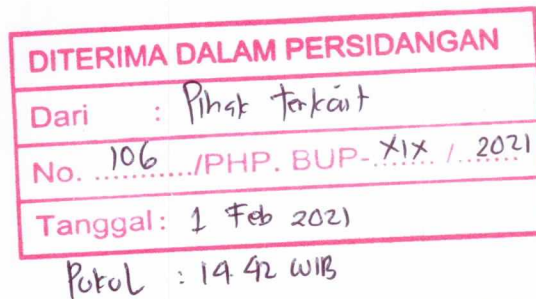 DITERIMA DALAM PERSIDANGAN
Dari : Pihak Terkait
No. 106 /PHP. BUP- XIX / 2021
Tanggal : 1 Feb 2021
Pukul : 14.42 WIB